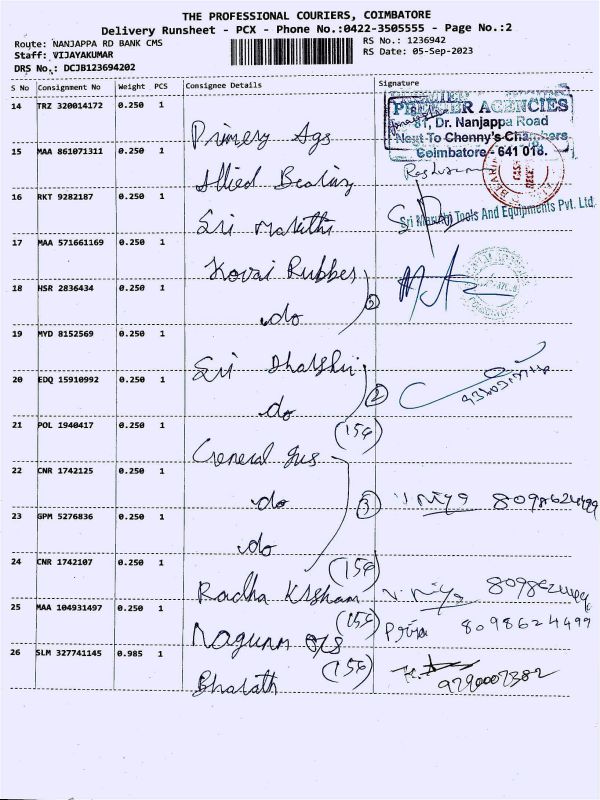 THE PROFESSIONAL COURIERS, COIMBATORE
Delivery Runsheet - PCX - Phone No.:0422-3505555 - Page No.:2
Route: NANJAPPA RD BANK CMS
Staff: VIJAYAKUMAR
DRS No.: DCJB123694202
RS No.: 1236942
RS Date: 05-Sep-2023
S No Consignment No Weight PCS Consignee Details Signature
14 TRZ 320014172 0.250 1
PREMIER AGENCIES
81, Dr. Nanjappa Road
Next To Chenny's Chambers
Coimbatore - 641 018.
Primery Ags
15 MAA 861071311 0.250 1
Allied Bearing
16 RKT 9282187 0.250 1
Sri Maruthi Tools And Equipments Pvt. Ltd.
Sri Maruthi
17 MAA 571661169 0.250 1
Kovai Rubber
18 HSR 2836434 0.250 1
do
2
19 MYD 8152569 0.250 1
Sri Dharshini
20 EDQ 15910992 0.250 1
do
2
21 POL 1940417 0.250 1
(156)
General Ins
22 CNR 1742125 0.250 1
do
3
8098624499
23 GPM 5276836 0.250 1
do
24 CNR 1742107 0.250 1
(156)
Radha Krishnan
8098624499
25 MAA 104931497 0.250 1
(156)
Priya 8098624499
26 SLM 327741145 0.985 1
(156)
Bharath
9790007382